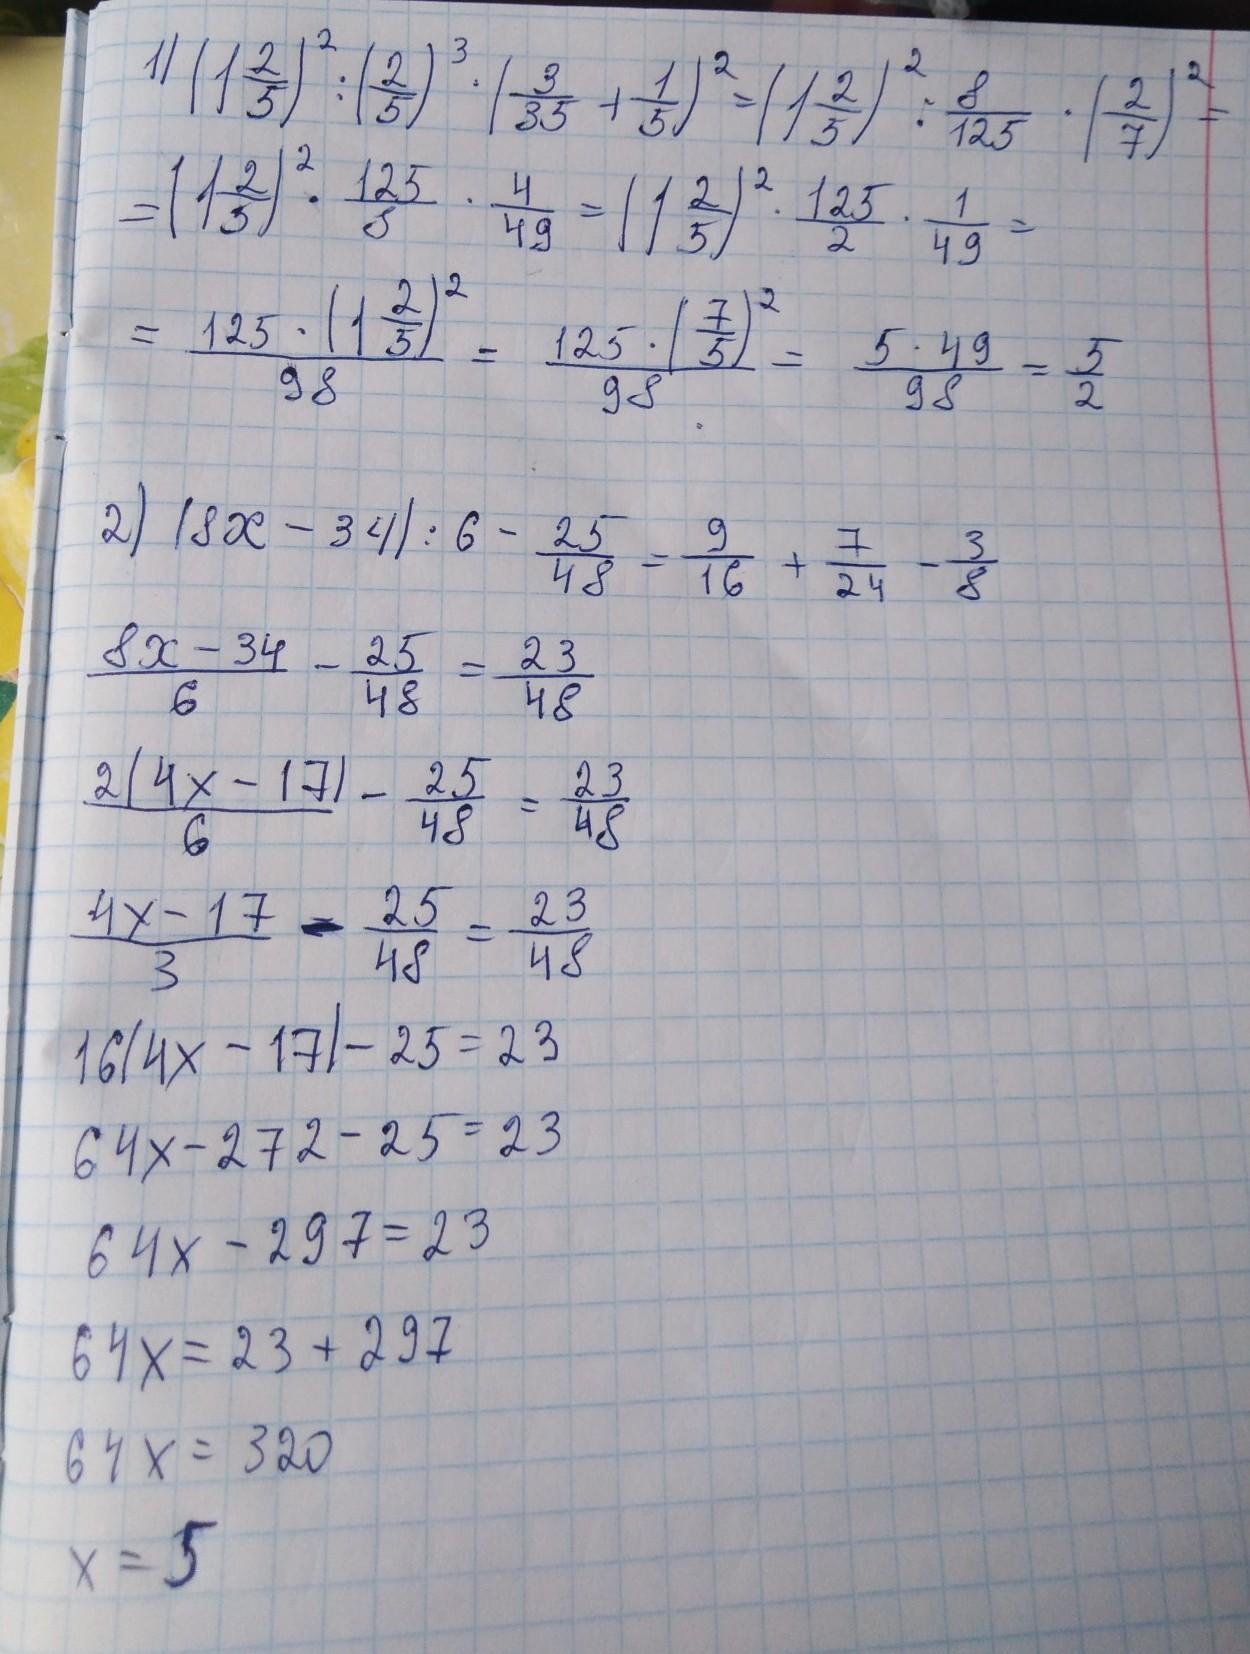 1) (1 2/5)² : (2/5)³ · (3/35 + 1/5)² = (1 2/5)² : 8/125 · (2/7)² =
= (1 2/5)² · 125/8 · 4/49 = (1 2/5)² · 125/2 · 1/49 =
= 125 · (1 2/5)² / 98 = 125 · (7/5)² / 98 = 5 · 49 / 98 = 5/2
2) (8x - 34) : 6 - 25/48 = 9/16 + 7/24 - 3/8
8x - 34 / 6 - 25/48 = 23/48
2(4x - 17) / 6 - 25/48 = 23/48
4x - 17 / 3 - 25/48 = 23/48
16(4x - 17) - 25 = 23
64x - 272 - 25 = 23
64x - 297 = 23
64x = 23 + 297
64x = 320
x = 5